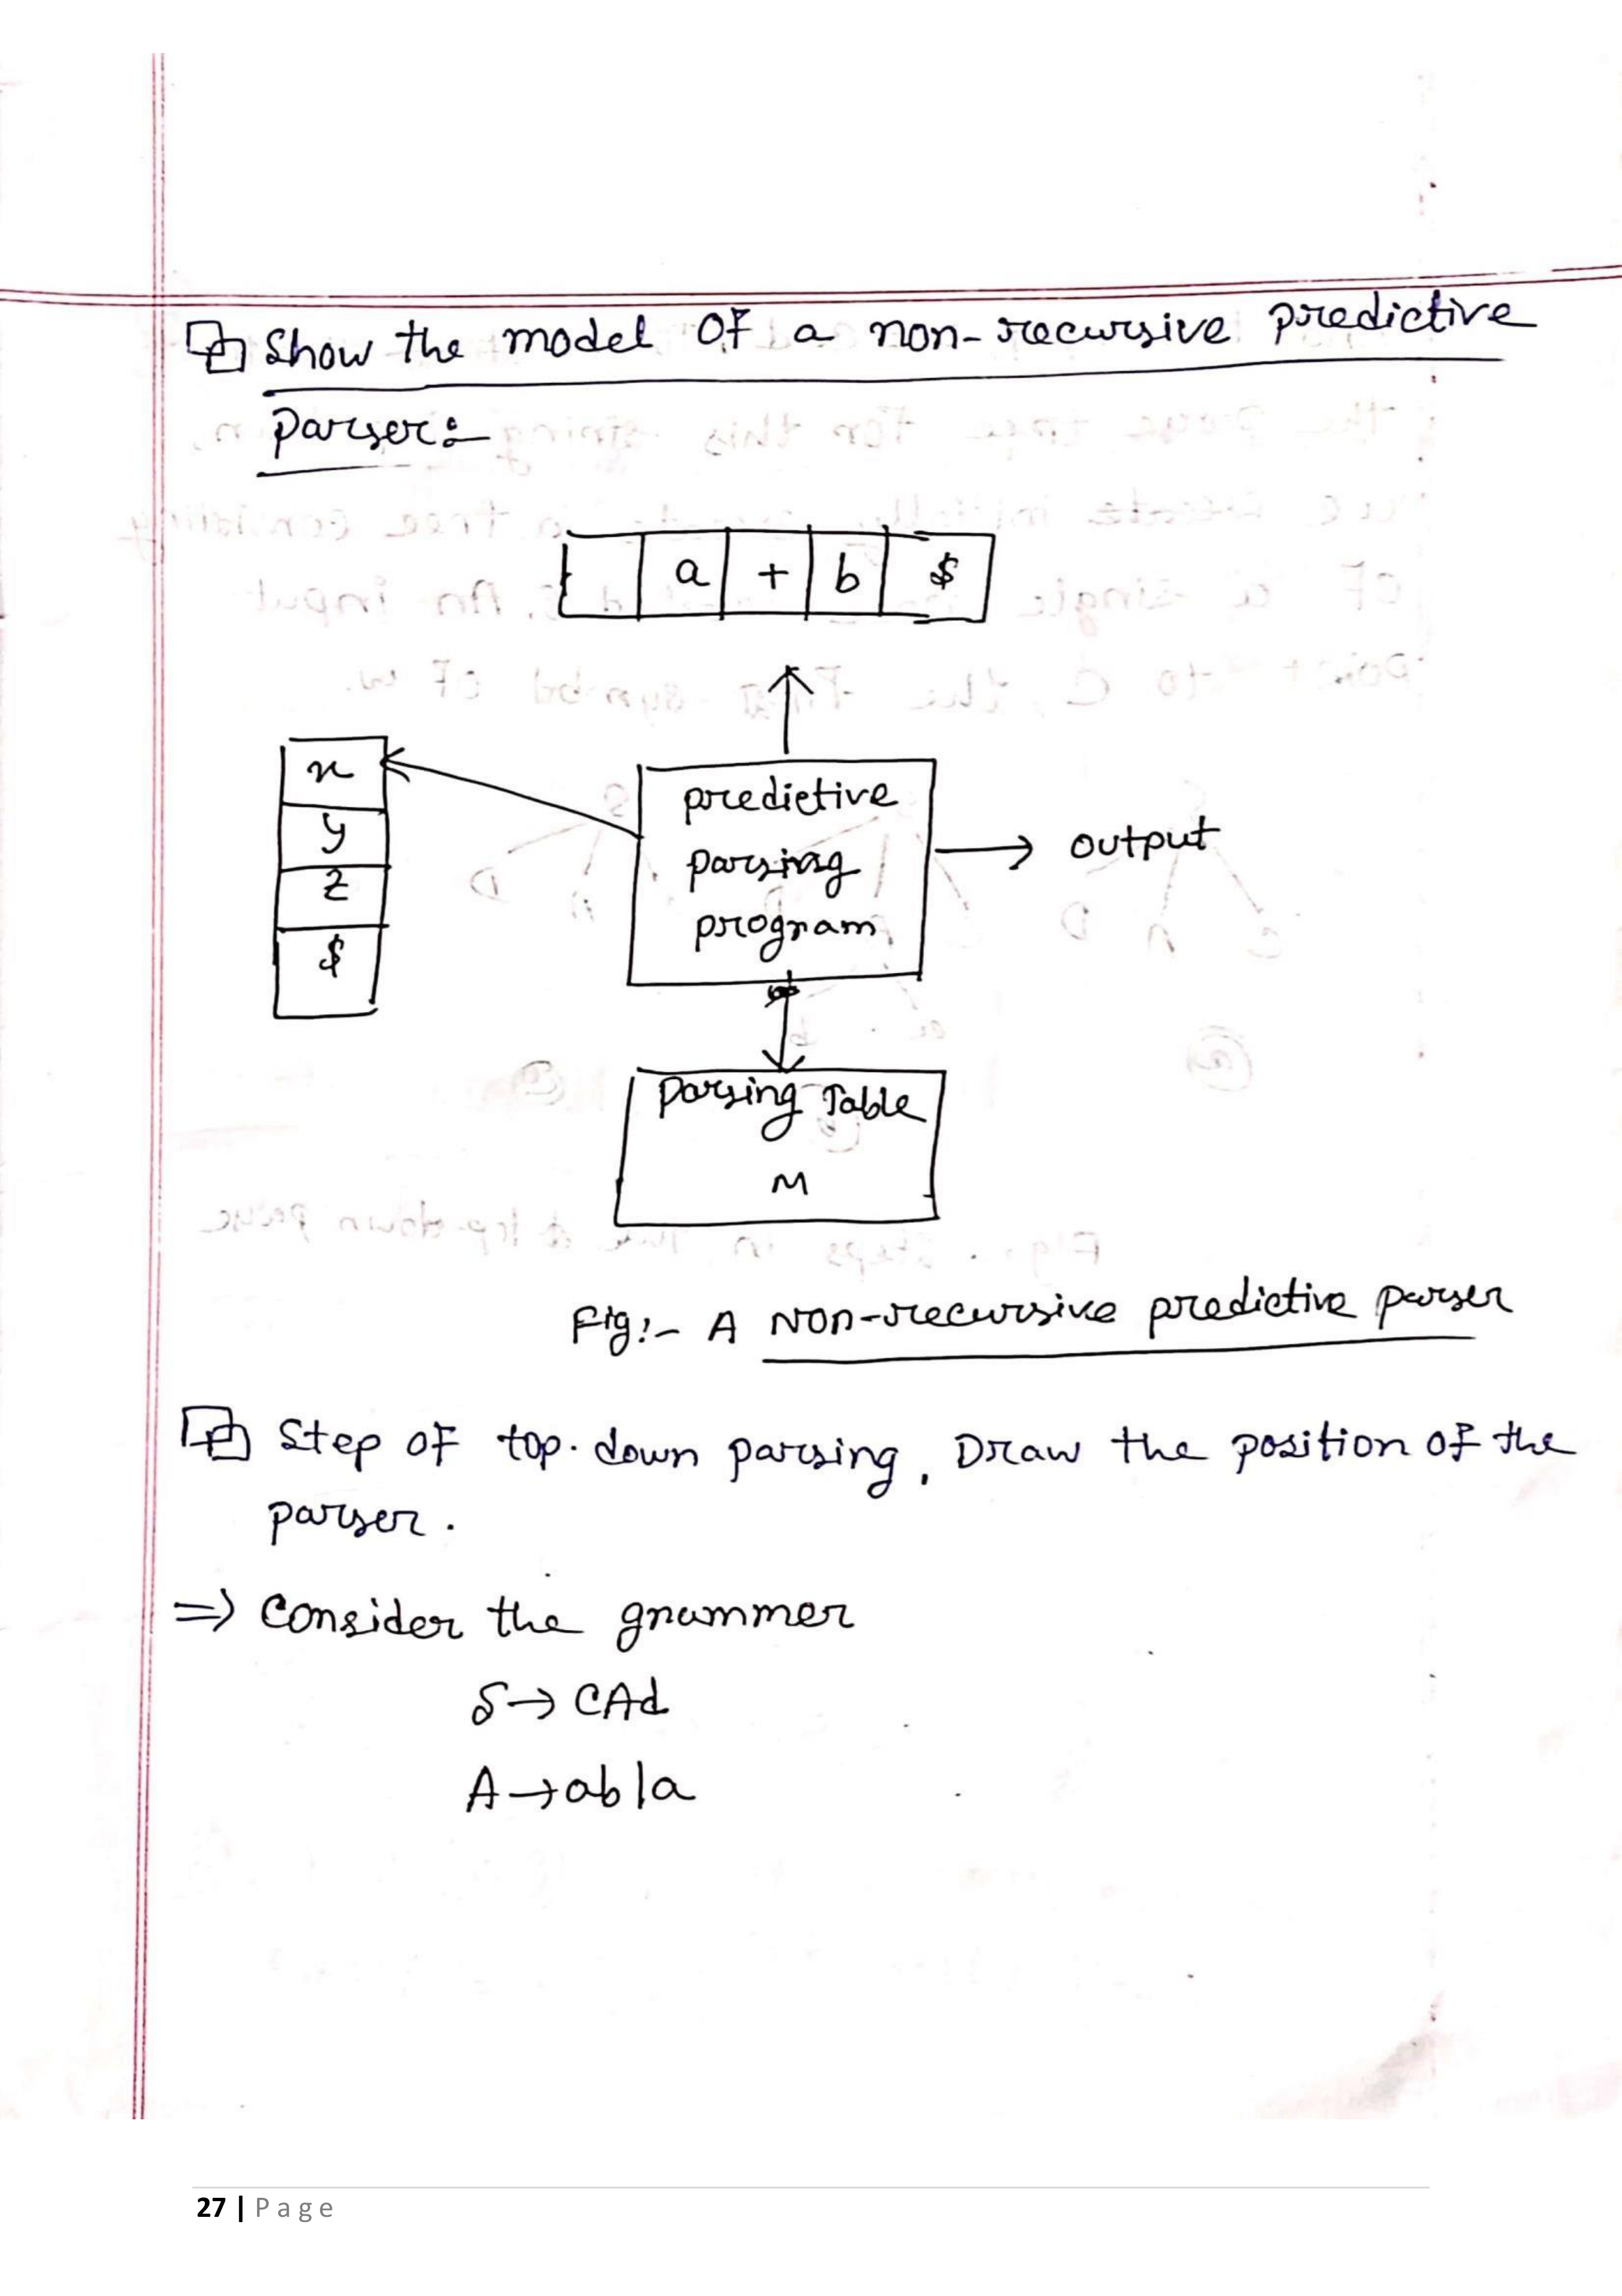 Show the model of a non-recursive predictive
parser:-
a + b $
x
y
z
$
predictive
parsing
program
output
Parsing Table
M
Fig:- A Non-recursive predictive parser
Step of top-down parsing, Draw the position of the
parser.
=> Consider the grammer
S→CAd
A→ab|a
27 | Page